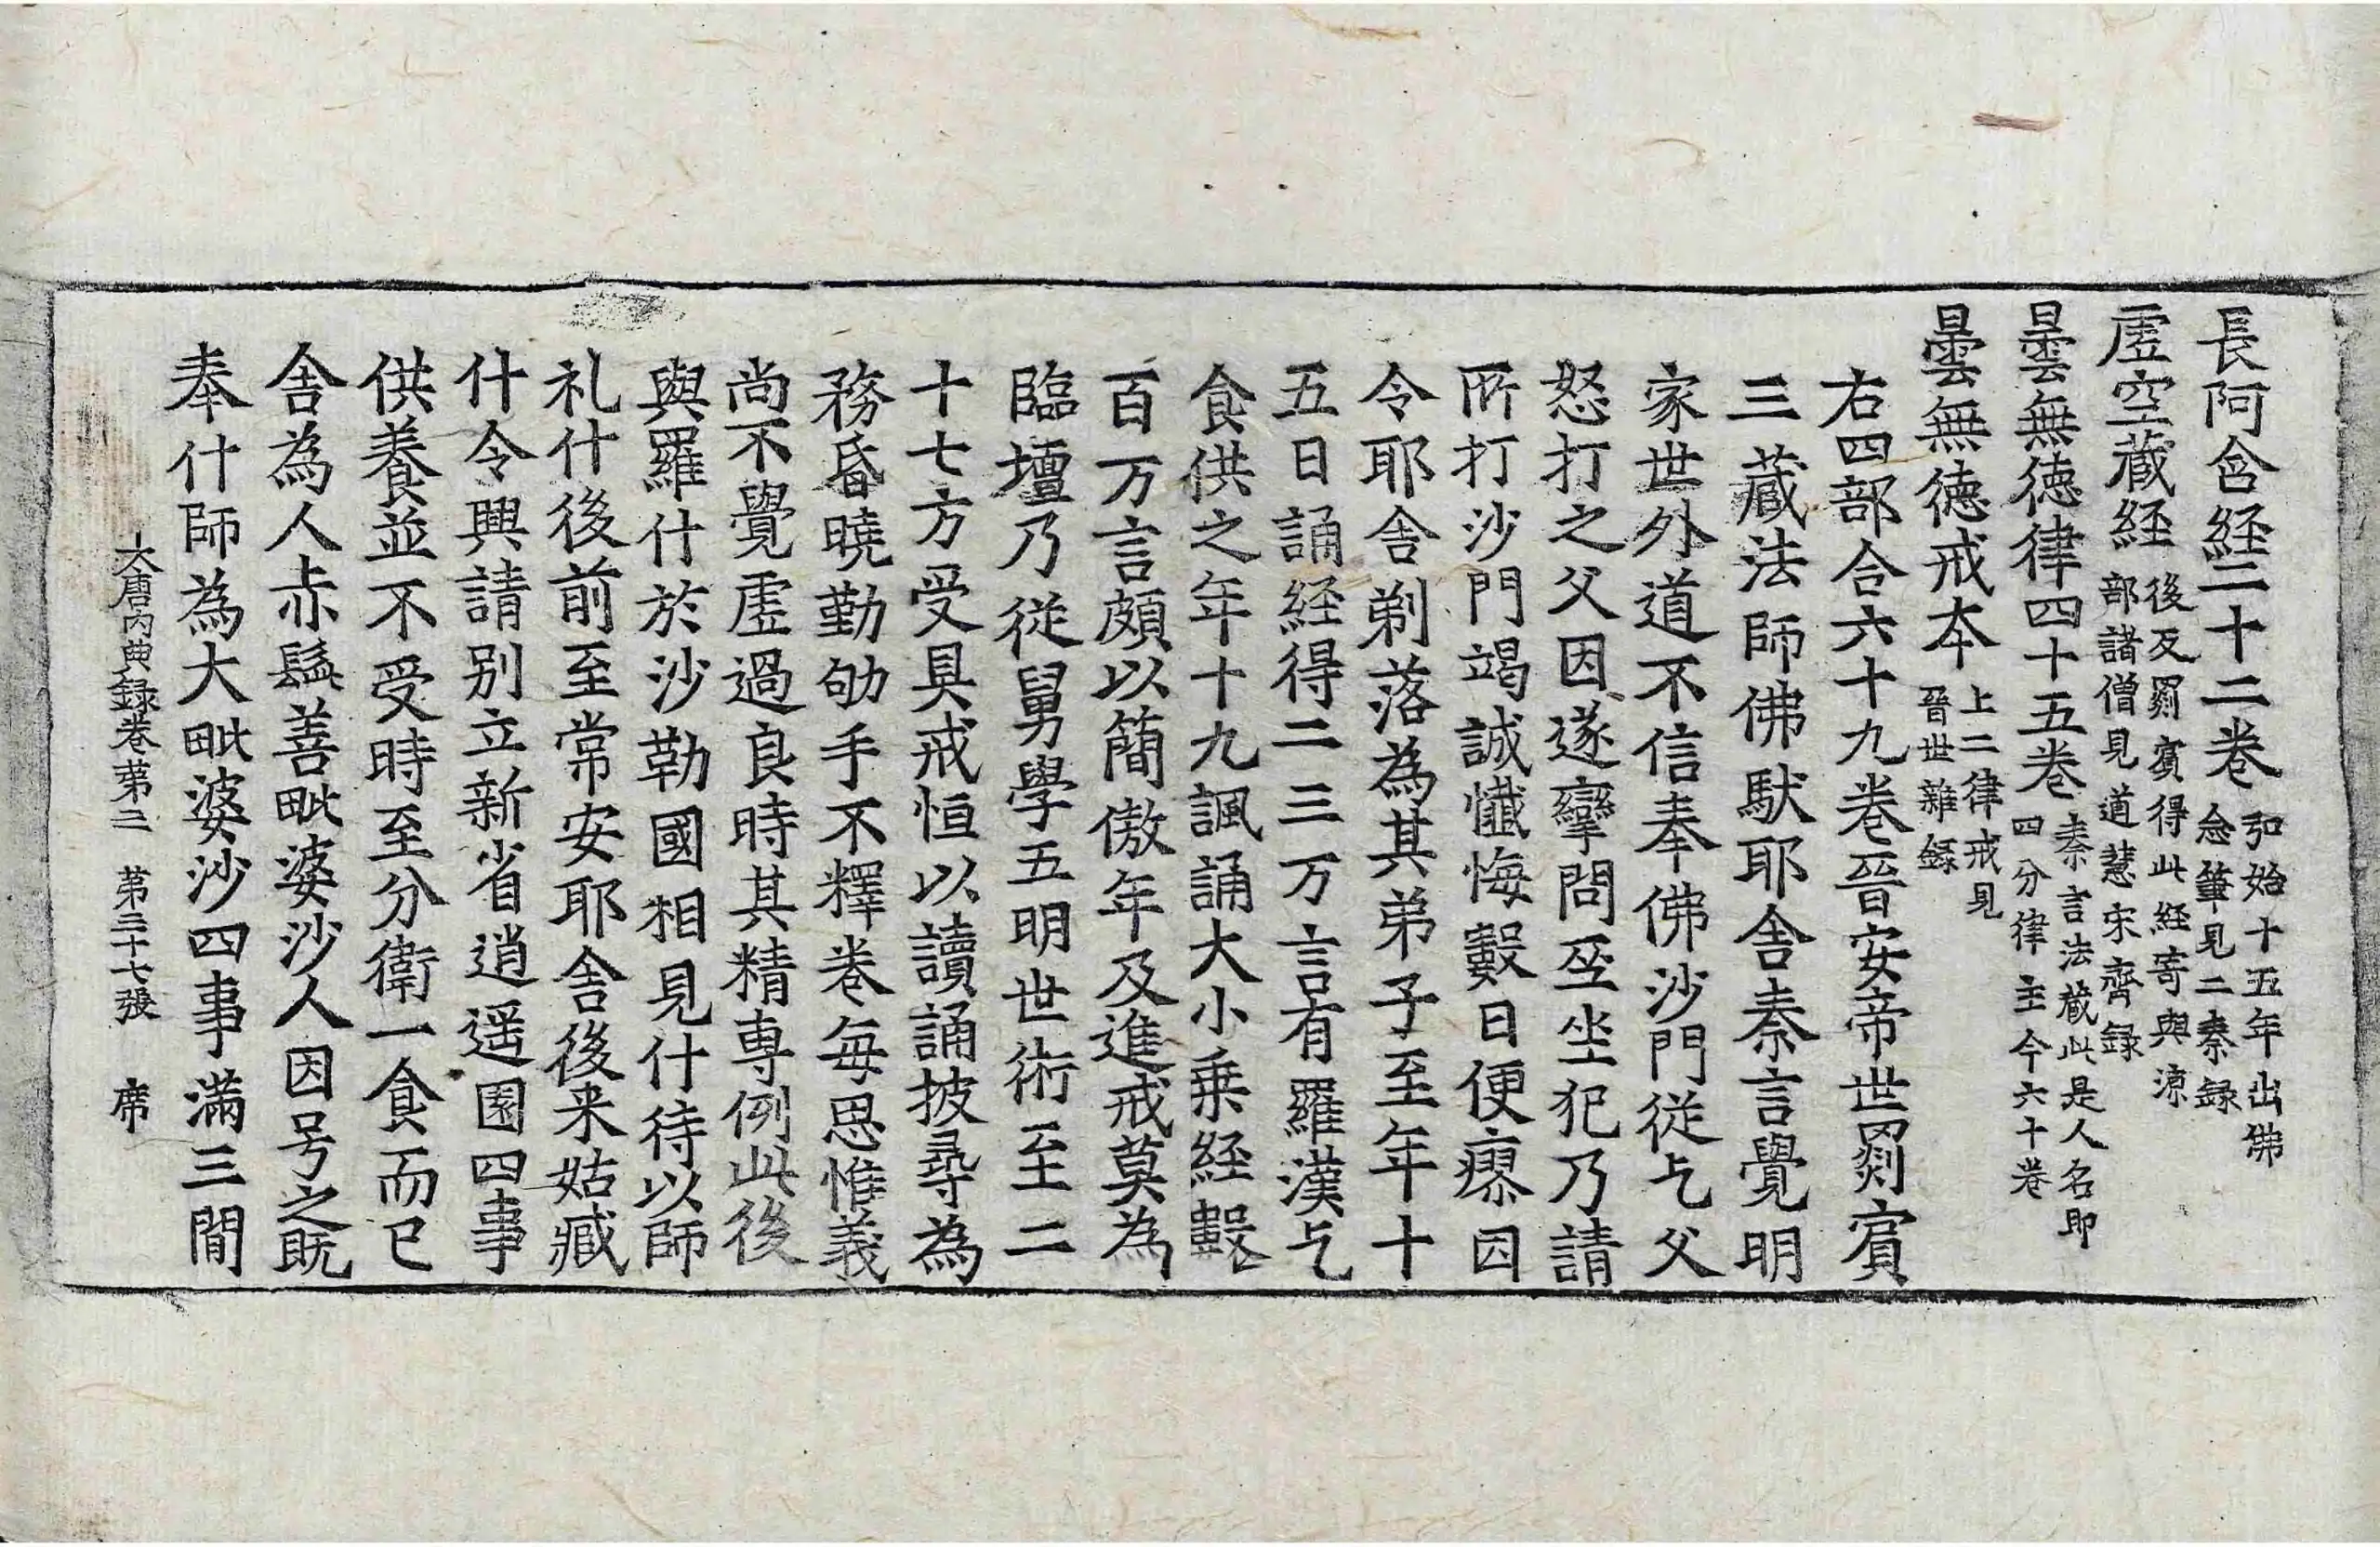 長阿含経二十二巻弘始十五年出佛念筆見二秦録
虚空藏経後反罽賔得此経寄與凉部諸僧見道慧宋齊録
曇無徳律四十五巻秦言法藏此是人名即四分律主今六十巻
曇無徳戒夲上二律戒見晉世雜録
右四部合六十九巻晉安帝世罽賔
三藏法師佛䭾耶舎秦言覺明
家世外道不信奉佛沙門従乞父
怒打之父因遂攣問巫坐犯乃請
所打沙門竭誠懺悔數日便瘳因
令耶舎剃落為其弟子至年十
五日誦経得二三万言有羅漢乞
食供之年十九諷誦大小乗経數
百万言頗以簡傲年及進戒莫為
臨壇乃従舅學五明世術至二
十七方受具戒恒以讀誦披尋為
務昬曉勤劬手不釋巻毎思惟義
尚不覺虚過良時其精專例此後
與羅什於沙勒國相見什待以師
礼什後前至常安耶舎後来姑臧
什令興請别立新省逍遥園四事
供養並不受時至分衛一食而已
舎為人赤髭善毗婆沙人因号之既
奉什師為大毗婆沙四事滿三間
大唐内典録巻第二　第三十七張　席